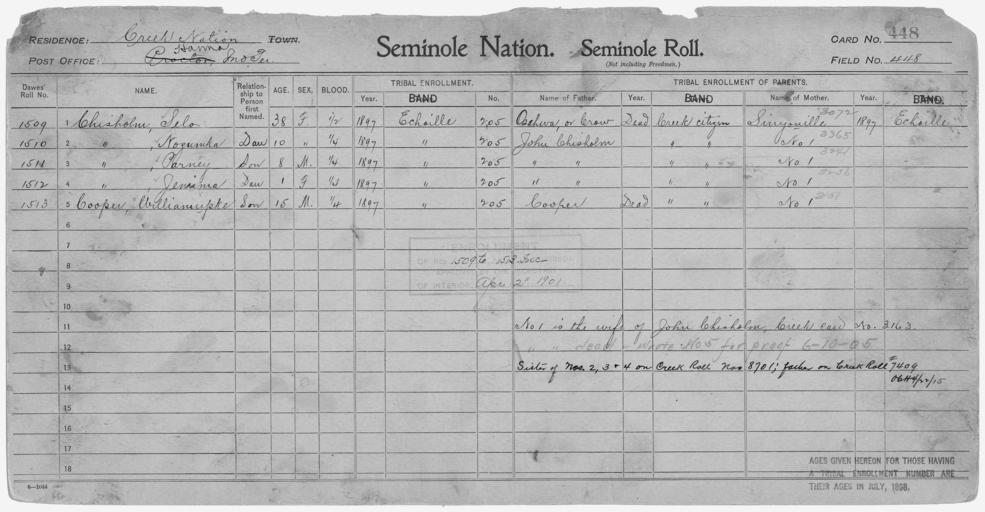 RESIDENCE: Creek Nation TOWN.
POST OFFICE: Proctor, Hanna Ind Ter
Seminole Nation. Seminole Roll.
(Not including Freedmen.)
CARD NO. 448
FIELD NO. 448
Dawes' Roll No. NAME. Relationship to Person first Named. AGE. SEX. BLOOD. TRIBAL ENROLLMENT. TRIBAL ENROLLMENT OF PARENTS.
Year. BAND No. Name of Father. Year. BAND Name of Mother. Year. BAND.
1509 1 Chisholm, Selo 38 F 1/2 1897 Echoille 205 Ochwa, or Crow Dead Creek citizen Sinyouille 1897 Echoille
1510 2 " , Nogumka Dau 10 " 1/4 1897 " 205 John Chisholm " " No 1
1511 3 " , Parney Son 8 M. 1/4 1897 " 205 " " " " No 1
1512 4 " , Jemima Dau 1 F 1/4 1897 " 205 " " " " No 1
1513 5 Cooper, Williamupke Son 15 M. 1/4 1897 " 205 Cooper Dead " " No 1
6
7
ENROLLMENT
OF NOS. 1509 to 1513 Inc HEREON
8
OF INTERIOR Apr 2" 1901
9
10
11 No 1 is the wife of John Chisholm, Creek card No. 3163.
12 " " dead - wrote No 5 for proof 6-10-05
13 Sister of Nos. 2, 3 & 4 on Creek Roll Noo 8701; father on Creek Roll #7409
14
15
16
17
18
AGES GIVEN HEREON FOR THOSE HAVING
A TRIBAL ENROLLMENT NUMBER ARE
THEIR AGES IN JULY, 1898.
6-1044